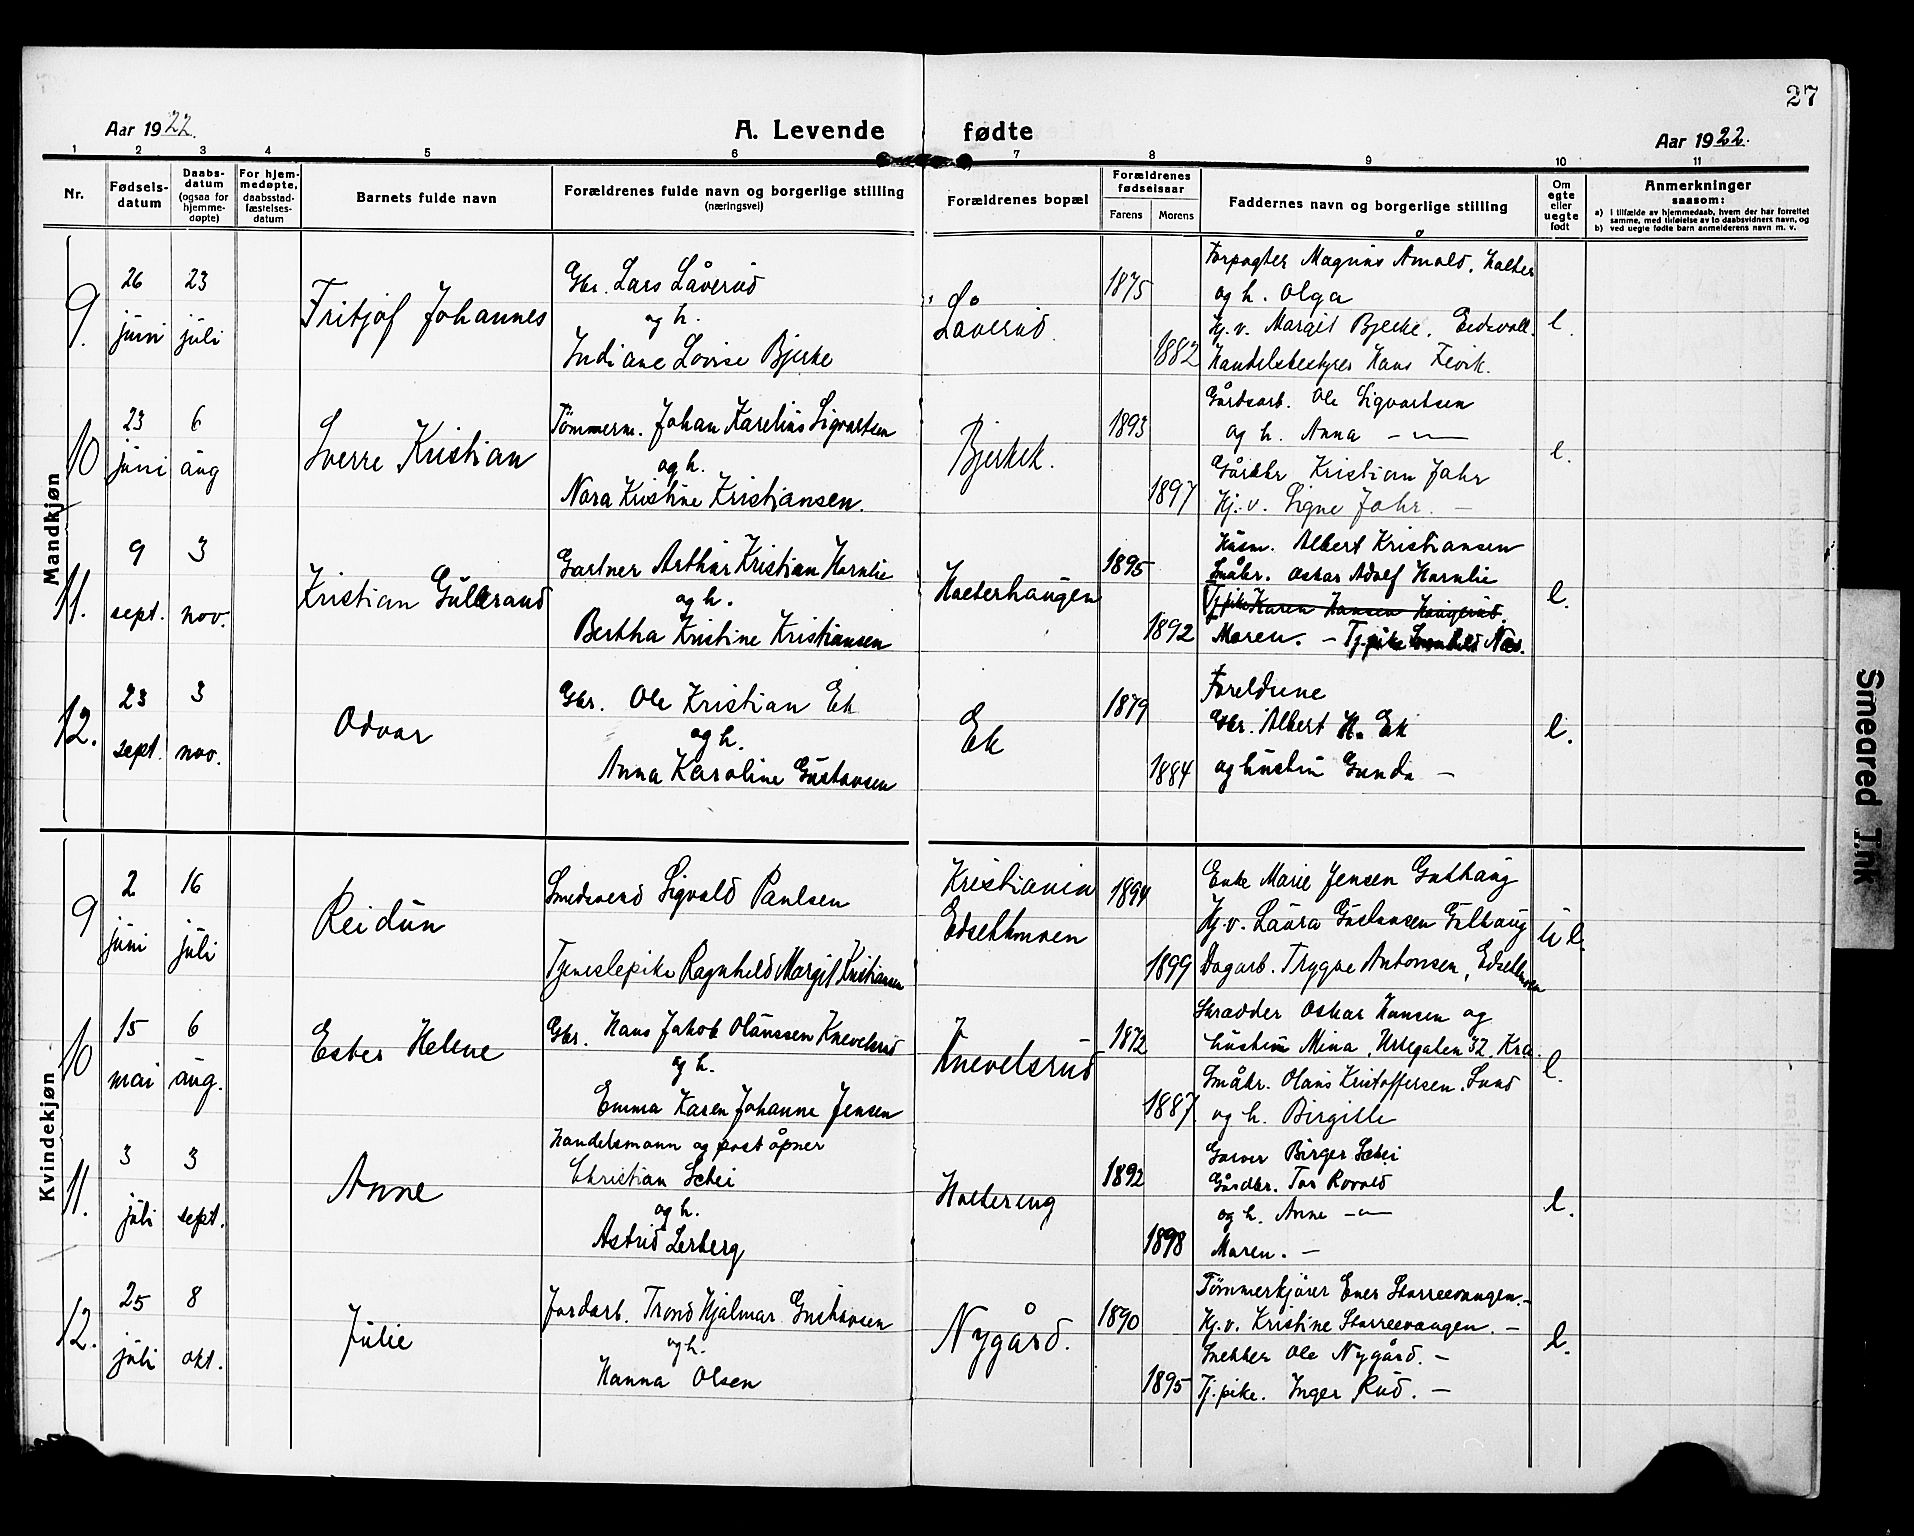 27
Aar 1922.
A. Levende fødte
Aar 1922.
1 2 3 4 5 6 7 8 9 10 11
Nr.
Fødsels-
datum
Daabs-
datum
(ogsaa for
hjemme-
døpte)
For hjem-
medøpte,
daabsstad-
fæstelses-
datum
Barnets fulde navn
Forældrenes fulde navn og borgerlige stilling
(næringsvei)
Forældrenes bopæl
Forældrenes
fødselsaar
Farens Morens
Faddernes navn og borgerlige stilling
Om
egte
eller
uegte
født
Anmerkninger
saasom:
a) i tilfælde av hjemmedaab, hvem der har forrettet
samme, med tilføielse av to daabsvidners navn, og
b) ved uegte fødte barn anmelderens navn m. v.
Mandkjøn
9.
26
juni
23
juli
Fritjof Johannes
Gbr. Lars Låverud
og h.
Indiane Lovise Bjerke
Låverud.
1875
1882
Forpagter Magnus Åmold, Holter
og h. Olga
Hj.v. Margit Bjerke. Eidsvoll.
Handelsbestyrer Hans
e.
10
23
juni
6
aug
Sverre Kristian
Tømmerm. Johan Karelius Sigvartsen
og h.
Nora Kristine Kristiansen.
Bjerkek.
1893
1897
Gårdsarb. Ole Sigvartsen
og h. Anna — " —
Gårdbr Kristian Jahr
Hj.v. Signe Jahr. —
e.
11.
9
sept.
3
nov.
Kristian Gulbrand
Gartner Arthur Kristian Hornlie
og h.
Bertha Kristine Kristiansen
Holterhaugen
1895
1892
Husm. Albert Kristiansen
Småbr. Oskar Adolf Hornlie
Tj.pike Karen Hansen Haugerud.
Moren. — Tj.pike Næs.
e.
12.
23
sept.
3
nov.
Odvar
Gbr. Ole Kristian Ek
og h.
Anna Karoline Gustavsen
Ek
1879
1884
Foreldrene
Gbr. Albert H. Ek
og hustru Gunda —
e.
Kvindekjøn
9
2
juni
16
juli
Reidun
Smedsvend Sigvald Paulsen
Tjenestepike Ragnhild Margit Kristiansen
Kristiania
Edsethmoen
1894
1899
Enke Marie Jensen Gulhaug
Hj.v. Laura Gustavsen Gulhaug
Dagarb. Trygve Antonsen, Edsethmoen
u e.
10
15
mai
6
aug.
Ester Helene
Gbr. Hans Jakob Olaussen Knevelsrud
og h.
Emma Karen Johanne Jensen
Knevelsrud
1872
1887
Skrædder Oskar Hansen og
hustru Mina, Urtegaten 32. Kra.
Småbr. Olaus Kristoffersen. Lund
og h. Birgitte
e.
11.
3
juli
3
sept.
Anne
Handelsmann og poståpner
Christian Schei
og h.
Astrid Lerberg
Holtereng
1892
1898
Garver Birger Schei
Gårdbr. Tor Rovold
og h. Anne — " —
Moren. —
e.
12.
25
juli
8
okt.
Julie
Jordarb. Trond Hjalmar Gustavsen
og h.
Hanna Olsen
Nygård.
1890
1895
Tømmerkjører Ener Storreevangen. —
Hj.v. Kristine Storreevangen. —
Snekker Ole Nygård. —
Tj.pike. Inger Rud. —
e.
Smeared Ink